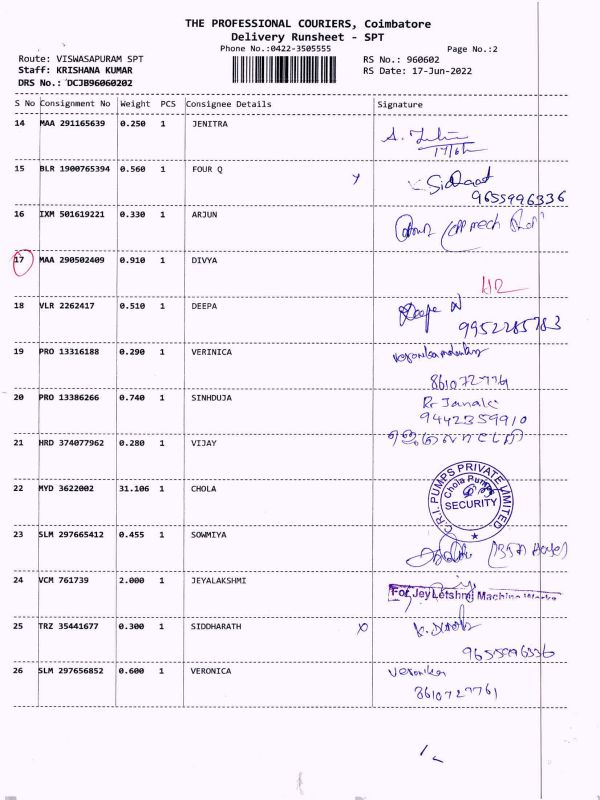 THE PROFESSIONAL COURIERS, Coimbatore
Delivery Runsheet - SPT
Phone No.:0422-3505555
Page No.:2
Route: VISWASAPURAM SPT
RS No.: 960602
Staff: KRISHANA KUMAR
RS Date: 17-Jun-2022
DRS No.: DCJB96060202
S No Consignment No Weight PCS Consignee Details Signature
14 MAA 291165639 0.250 1 JENITRA
15 BLR 1900765394 0.560 1 FOUR Q
9655996336
16 IXM 501619221 0.330 1 ARJUN
17 MAA 290502409 0.910 1 DIVYA
18 VLR 2262417 0.510 1 DEEPA
Deepa N
9952285783
19 PRO 13316188 0.290 1 VERINICA
20 PRO 13386266 0.740 1 SINHDUJA
Janaki
9442359910
21 HRD 374077962 0.280 1 VIJAY
22 MYD 3622002 31.106 1 CHOLA
C.R.I. PUMPS PRIVATE LIMITED
Chola Pumps
SECURITY
23 SLM 297665412 0.455 1 SOWMIYA
24 VCM 761739 2.000 1 JEYALAKSHMI
For Jey Letshmi Machine Works
25 TRZ 35441677 0.300 1 SIDDHARATH
9655996336
26 SLM 297656852 0.600 1 VERONICA
Veronika
8610727761